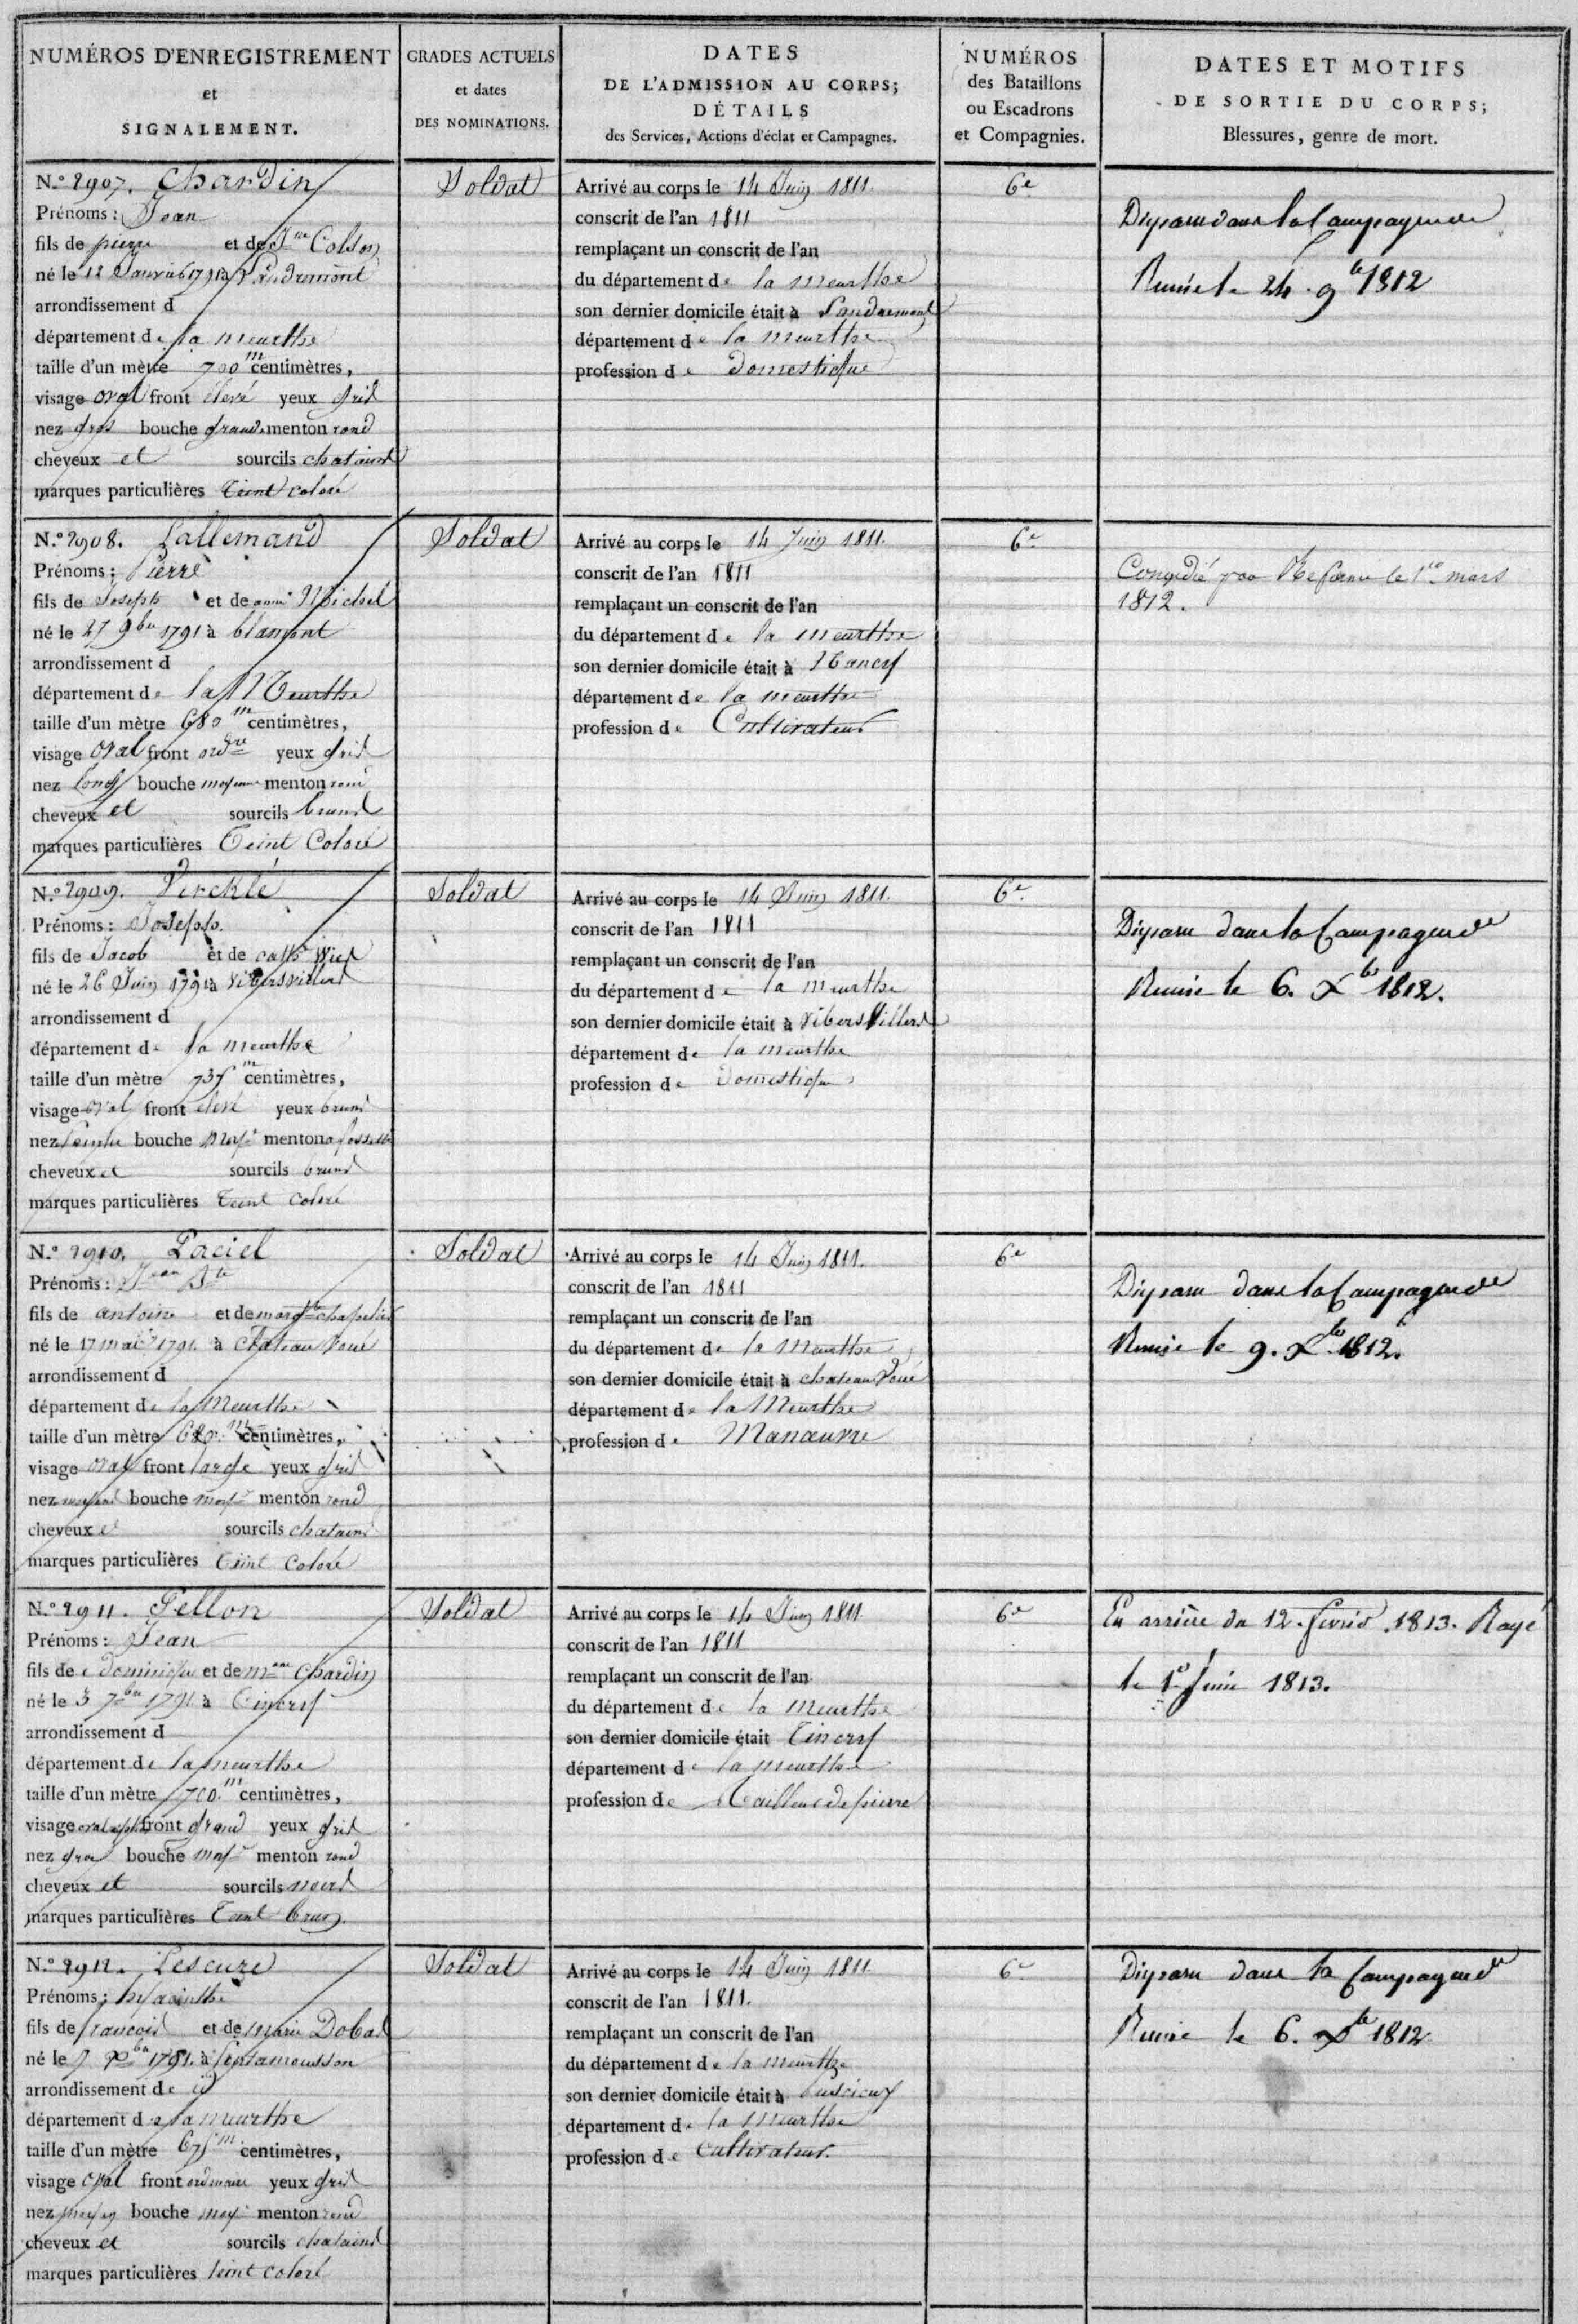 NUMÉROS D'ENREGISTREMENT
et
SIGNALEMENT.
GRADES ACTUELS
et dates
DES NOMINATIONS.
DATES
DE L'ADMISSION AU CORPS;
DÉTAILS
des Services, Actions d'éclat et Campagnes.
NUMÉROS
des Bataillons
ou Escadrons
et Compagnies.
DATES ET MOTIFS
DE SORTIE DU CORPS;
Blessures, genre de mort.
N.º 2907. Chardin
Prénoms: Jean
fils de pierre et de Colson
né le 12 Janvier 1791 à Landremont
arrondissement d
département de la meurthe
taille d'un mètre 700 m centimètres,
visage oval front élevé yeux gris
nez gros bouche grande menton rond
cheveux et sourcils chatains
marques particulières Teint coloré
Soldat
Arrivé au corps le 14 Juin 1811.
conscrit de l'an 1811
remplaçant un conscrit de l'an
du département de la meurthe
son dernier domicile était à Landremont
département de la meurthe
profession de Domestique
6e
Disparu dans la Campagne de
Russie le 24. 9bre 1812
N.º 2908. Lallemand
Prénoms: Pierre
fils de Joseph et de anne Michel
né le 27 9bre 1791 à blamont
arrondissement d
département de la Meurthe
taille d'un mètre 680 m centimètres,
visage oval front ordre yeux gris
nez long bouche moyenne menton rond
cheveux et sourcils bruns
marques particulières Teint Coloré
Soldat
Arrivé au corps le 14 Juin 1811.
conscrit de l'an 1811
remplaçant un conscrit de l'an
du département de la meurthe
son dernier domicile était à Nancy
département de la meurthe
profession de Cultivateur
6e
Congédié par Reforme le 1er mars
1812.
N.º 2909. Vircklé
Prénoms: Joseph.
fils de Jacob et de cathe
né le 26 Juin 1791 à Vibersvillers
arrondissement d
département de la meurthe
taille d'un mètre 735 m centimètres,
visage oval front elevé yeux bruns
nez pointu bouche moye menton a fossette
cheveux et sourcils bruns
marques particulières Teint coloré
Soldat
Arrivé au corps le 14 Juin 1811.
conscrit de l'an 1811
remplaçant un conscrit de l'an
du département de la meurthe
son dernier domicile était à Vibersvillers
département de la meurthe
profession de Domestique
6e
Disparu dans la Campagne de
Russie le 6. Xbre 1812.
N.º 2910. Paciel
Prénoms: Jean Bte
fils de antoine et de margte chapelier
né le 17 mai 1791. à Chateau Voué
arrondissement d
département de la Meurthe
taille d'un mètre m centimètres,
visage oval front large yeux gris
nez moyen bouche moye menton rond
cheveux et sourcils chatains
marques particulières Teint coloré
Soldat
Arrivé au corps le 14 Juin 1811.
conscrit de l'an 1811
remplaçant un conscrit de l'an
du département de la Meurthe
son dernier domicile était à chateau Voué
département de la Meurthe
profession de Manœuvre
6e
Disparu dans la Campagne de
Russie le 9. Xbre 1812.
N.º 2911. Pellon
Prénoms: Jean
fils de dominique et de Chardin
né le 3 7bre 1791 à Tincry
arrondissement d
département de la meurthe
taille d'un mètre 700. m centimètres,
visage oval front grand yeux gris
nez gros bouche moye menton rond
cheveux et sourcils noirs
marques particulières Teint brun.
Soldat
Arrivé au corps le 14 Juin 1811.
conscrit de l'an 1811
remplaçant un conscrit de l'an
du département de la Meurthe
son dernier domicile était Tincry
département de la meurthe
profession de Tailleur de pierre
6e
En arrière du 12. fevrier. 1813. Rayé
le 1er Juin 1813.
N.º 2912. Lescure
Prénoms: hyacinthe
fils de francois et de marie
né le 7 Xbre 1791. à pontamousson
arrondissement de id
département de la meurthe
taille d'un mètre 675 m centimètres,
visage oval front ordinaire yeux gris
nez moyen bouche moye menton rond
cheveux et sourcils chatains
marques particulières teint coloré
Soldat
Arrivé au corps le 14 Juin 1811.
conscrit de l'an 1811.
remplaçant un conscrit de l'an
du département de la meurthe
son dernier domicile était à
département de la Meurthe
profession de cultivateur.
6e
Disparu dans la Campagne de
Russie le 6. Xbre 1812